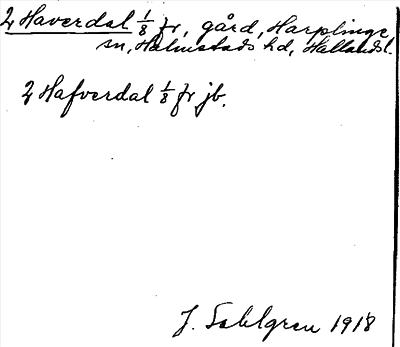 2 Haverdal 1/8 fr, gård, Harplinge
sn, Halmstads hd, Hallands l.
2 Hafverdal 1/8 fr jb.
J. Sahlgren 1918